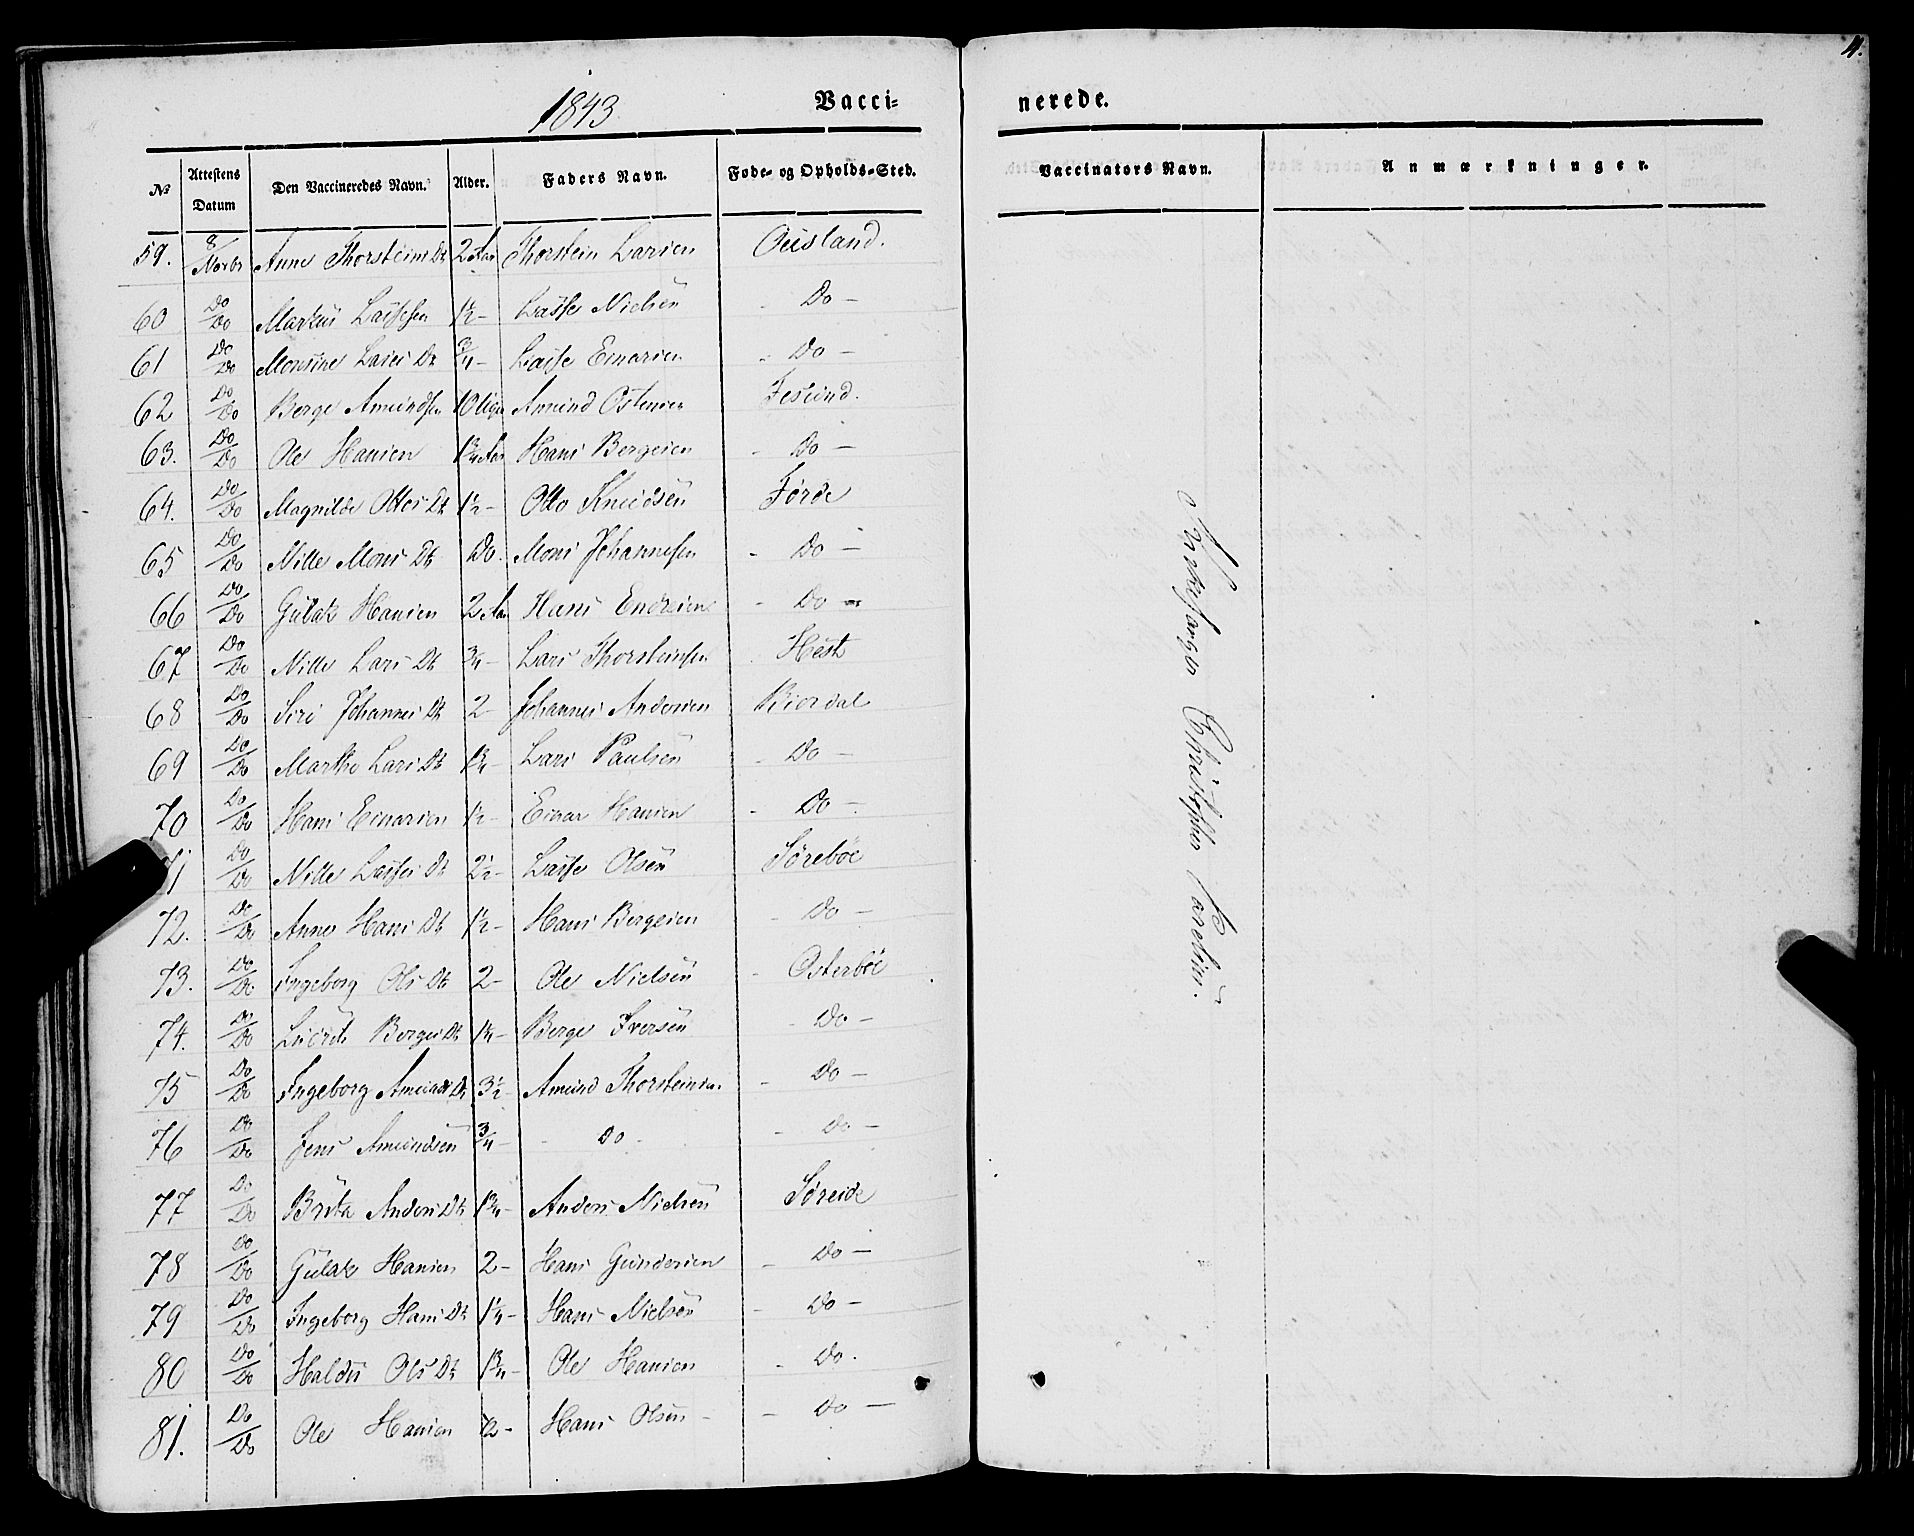 4.
1843.
Vacci-nerede.
No Attestens Datum Den Vaccineredes Navn. Alder. Faders Navn. Føde- og Opholds-Sted. Vaccinators Navn. Anmærkninger.
59. 8/Novbr Anne Thorsteins Dt 2 Aar Thorstein Larsen Ousland.
60 Do/Do Markus Lassesen 1½ - Lasse Nielsen - Do -
61 Do/Do Monsine Lasses Dt ¾ - Lasse Einarsen - Do -
62 Do/Do Berge Amundsen 10 Uger Amund Ostensen Tesund.
63. Do/Do Ole Hansen 1¾ Aar Hans Bergesen - Do -
64. Do/Do Magnilde Ottos Dt 1½ - Otto Knudsen Førde
65 Do/Do Nille Mons Dt Do. Mons Johannesen - Do -
66 Do/Do Gulak Hansen 2 Aar Hans Endresen - Do -
67 Do/Do Nille Lars Dt ¾ - Lars Thorsteinsen Hest
68 Do/Do Siri Johannes Dt 2 - Johannes Andersen Biordal
69 Do/Do Marthe Lars Dt 1¾ - Lars Paulsen - Do -
70 Do/Do Hans Einarsen 1½ - Einar Hansen - Do -
71 Do/Do Nille Lasses Dt 2½ - Lasse Olsen Sørebøe
72. Do/Do Anne Hans Dt 1½ - Hans Bergesen - Do -
73. Do/Do Ingeborg Ols Dt 2 - Ole Nielsen - Osterbøe
74. Do/Do Berges Dt 1¼ - Berge Iversen - Do -
75 Do/Do Ingeborg Amunds Dt 3½ - Amund Thorsteinsen - Do -
76 Do/Do Jens Amundsen ¾ - - Do - - Do -
77 Do/Do Brita Anders Dt 1¾ - Anders Nielsen Søreide
78 Do/Do Gulak Hansen 2 - Hans Gundersen - Do -
79 Do/Do Ingeborg Hans Dt 1¼ - Hans Nielsen - Do -
80 Do/Do Haldis Ols Dt 1¾ - Ole Hansen - Do.
81. Do/Do Ole Hansen ½ - Hans Olsen - - Do -
Kirkesanger Christopher